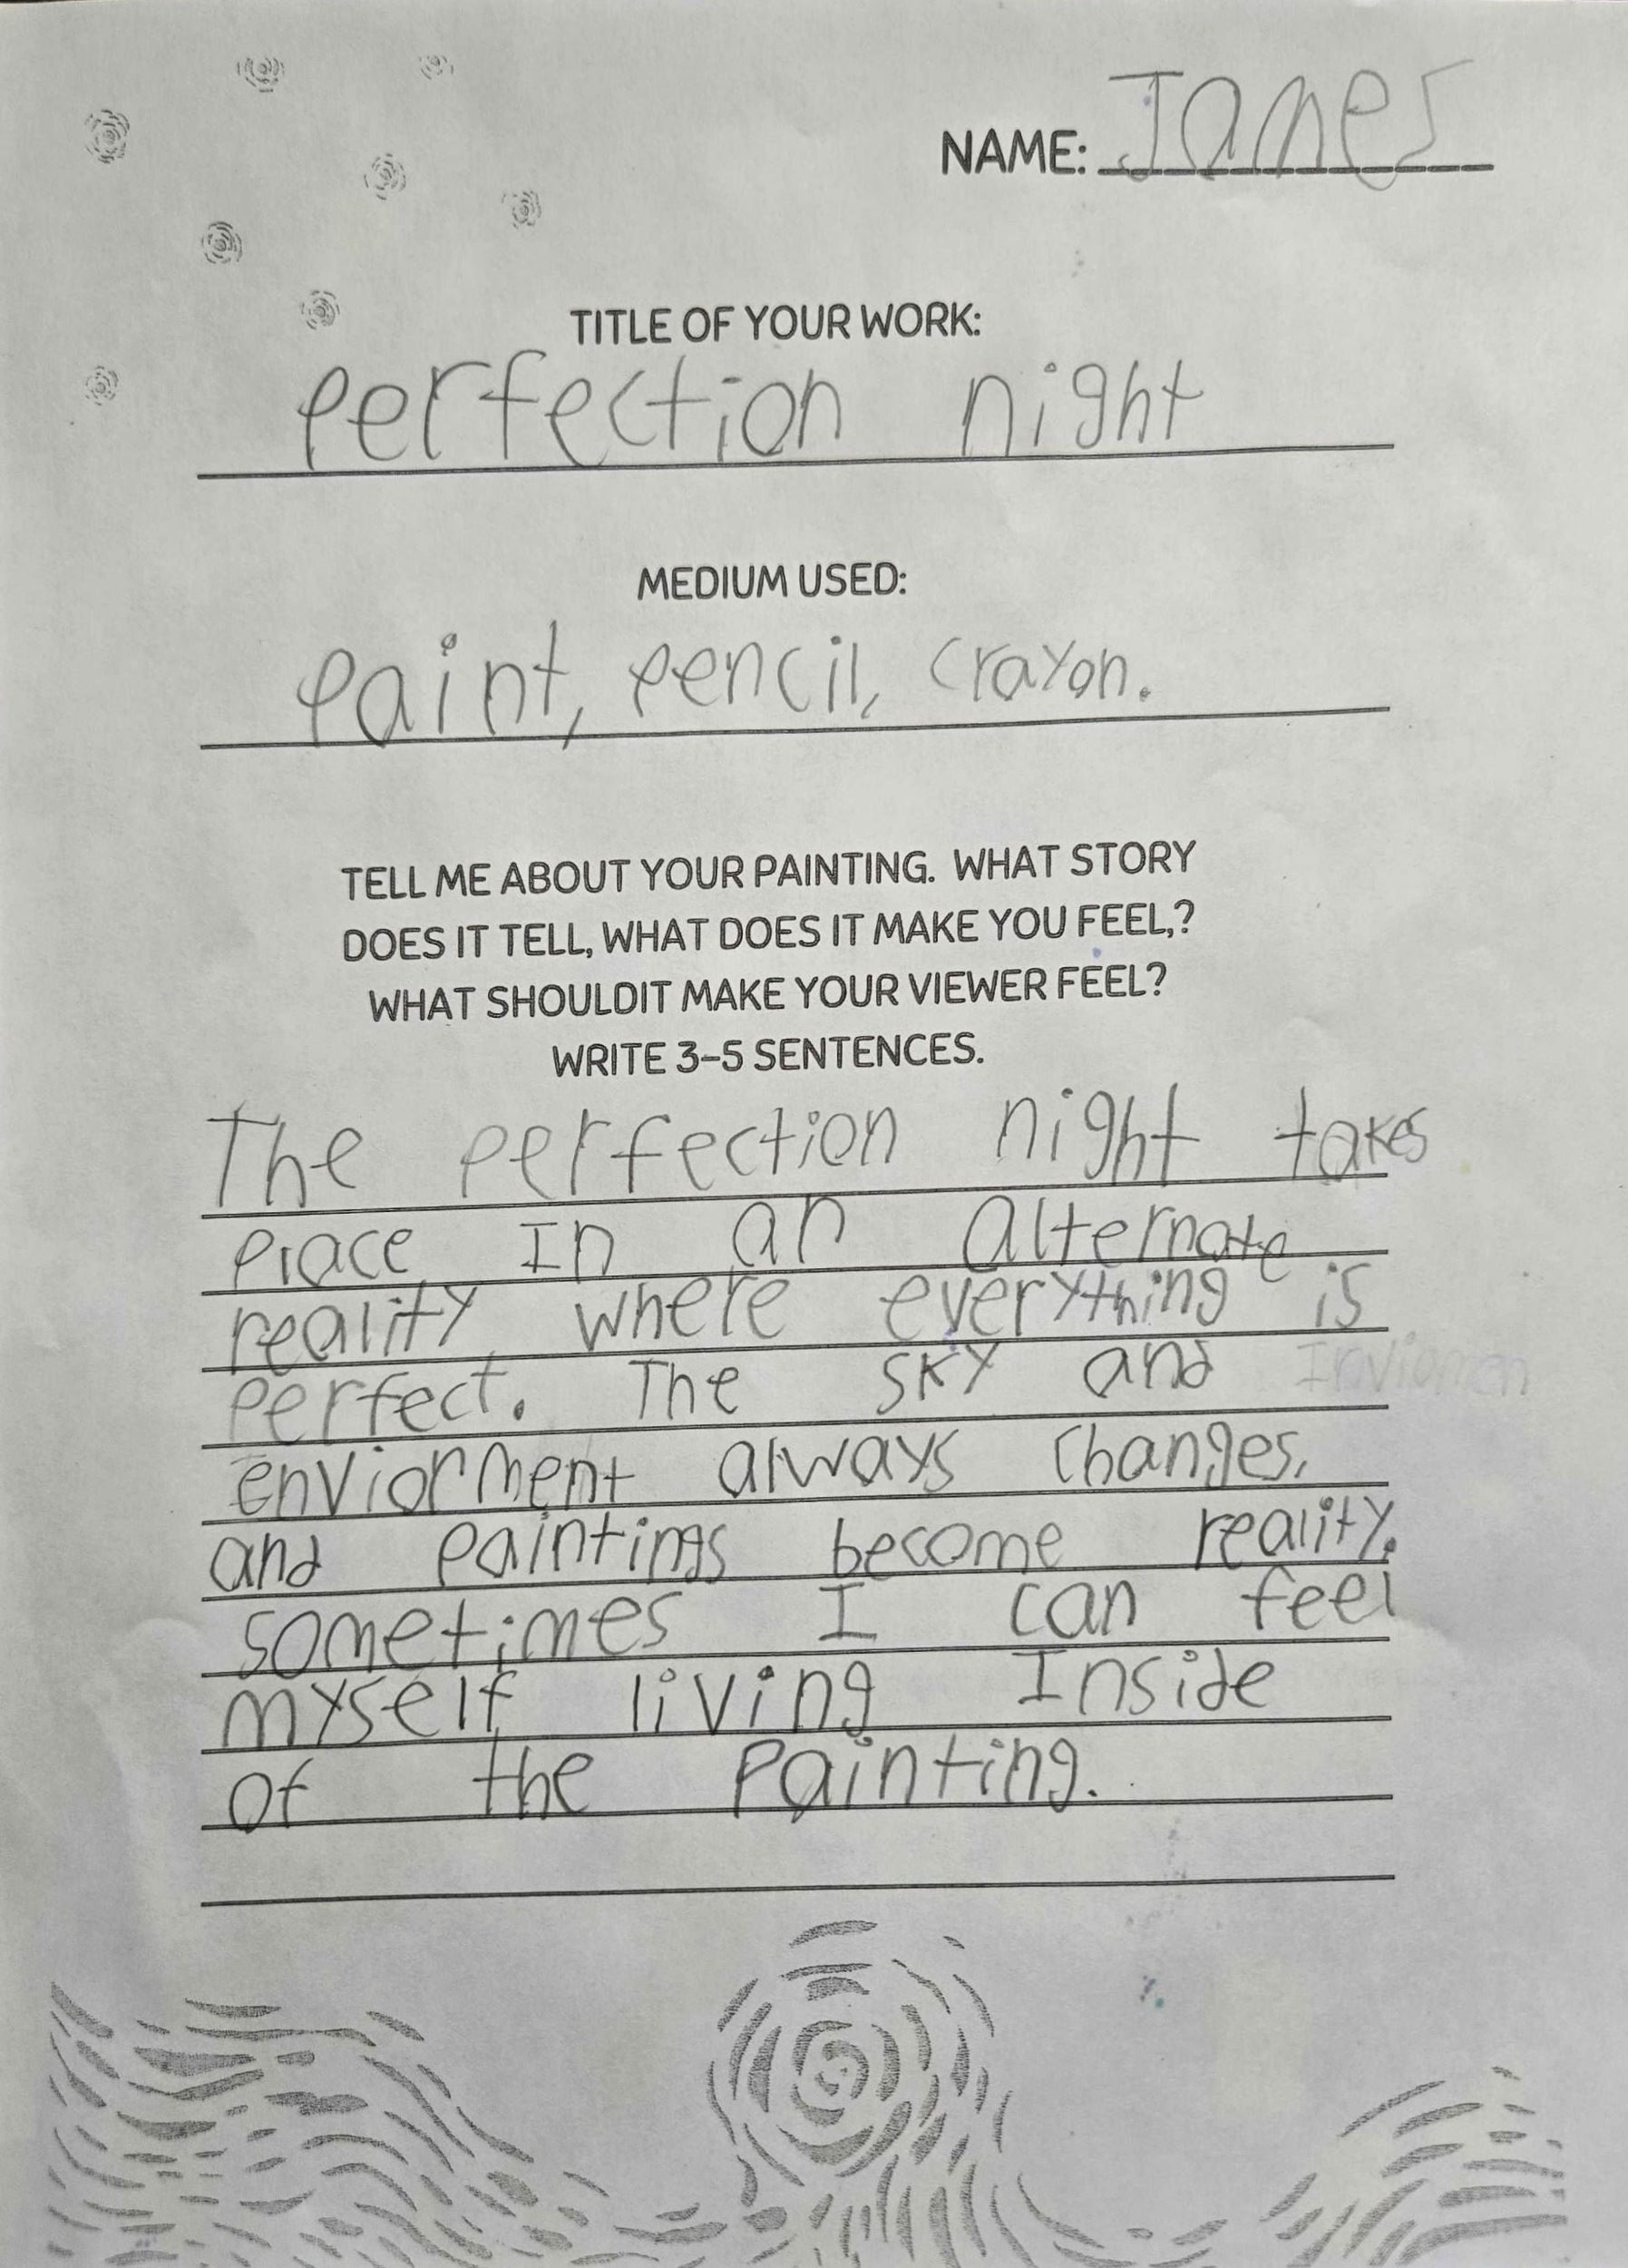 NAME: James
TITLE OF YOUR WORK:
perfection night
MEDIUM USED:
paint, pencil, crayon.
TELL ME ABOUT YOUR PAINTING. WHAT STORY
DOES IT TELL, WHAT DOES IT MAKE YOU FEEL,?
WHAT SHOULDIT MAKE YOUR VIEWER FEEL?
WRITE 3-5 SENTENCES.
The perfection night takes
place In an alternate
reality where everything is
perfect. The sky and
enviorment always changes,
and paintings become reality.
sometimes I can feel
myself living Inside
of the Painting.